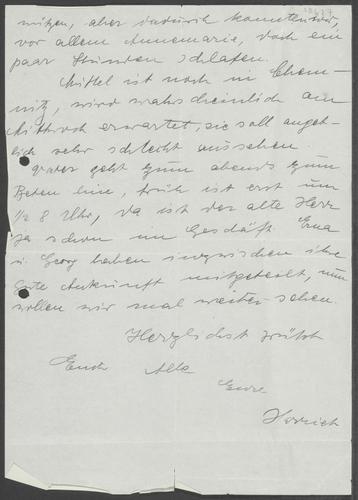 nützen, aber dadurch konnten wir,
vor allem Annemarie, doch ein
paar Stunden schlafen.
Mittel ist noch in Chem-
nitz, wird wahrscheinlich am
Mittwoch erwartet, sie soll angeb-
lich sehr schlecht aussehen.
Vater geht zum abends zum
Beten hin, früh ist erst um
½ 8 Uhr, da ist der alte Herr
ja schon im Geschäft. Erna
u. Georg haben inzwischen ihre
gute Ankunft mitgeteilt, nun
wollen wir mal weiter sehen.
Herzlichst grüßt
Euch Alle
Eure